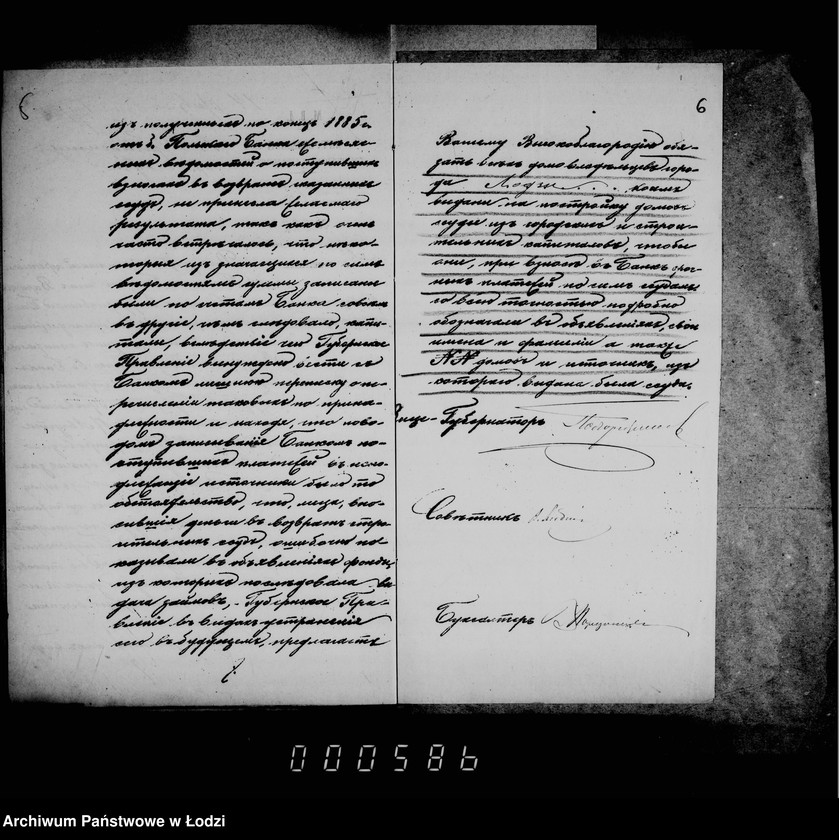 6
изъ полученныхъ по конецъ 1885 г.
отъ б. Польскаго Банка
ныхъ вѣдомостей о поступившихъ
взносахъ въ возвратъ сказанныхъ
ссудъ, не привела
результата, такъ какъ очень
часто встрѣчалось, что нѣко-
торыя изъ значащихся по симъ
вѣдомостямъ суммъ записаны
были по счетамъ Банка совсѣмъ
въ другіе, чѣмъ слѣдовало, капи-
талы, вслѣдствіе чего Губернское
Правленіе вынуждено вести съ
Банкомъ переписку о пе-
речисленіи таковыхъ по прина-
длежности и находя, что пово-
домъ записыванія Банкомъ по-
ступившихъ платежей въ нена-
длежащіе источники было то
обстоятельство, что, лица, вно-
сившія деньги въ возвратъ строи-
тельныхъ ссудъ, ошибочно по-
казывали въ объявленіяхъ фонды,
изъ которыхъ послѣдовала вы-
дача займовъ, - Губернское Пра-
вленіе въ видахъ устраненія
сего въ будущемъ, предлагаетъ
6
Вашему Высокоблагородію обя-
зать всѣхъ домовладѣльцевъ горо-
да Лодзи коимъ
выданы на постройку домовъ
ссуды изъ городскихъ и строи-
тельныхъ капиталовъ, чтобы
они, при взносѣ въ Банкъ сроч-
ныхъ платежей по симъ ссудамъ
со всею точностью подробно
обозначали въ объявленіяхъ, свои
имена и фамиліи а также
NN домовъ и источникъ, изъ
котораго выдана была ссуда.
Вице-Губернаторъ
Совѣтникъ
Бухгалтеръ
000586
Archiwum Państwowe w Łodzi